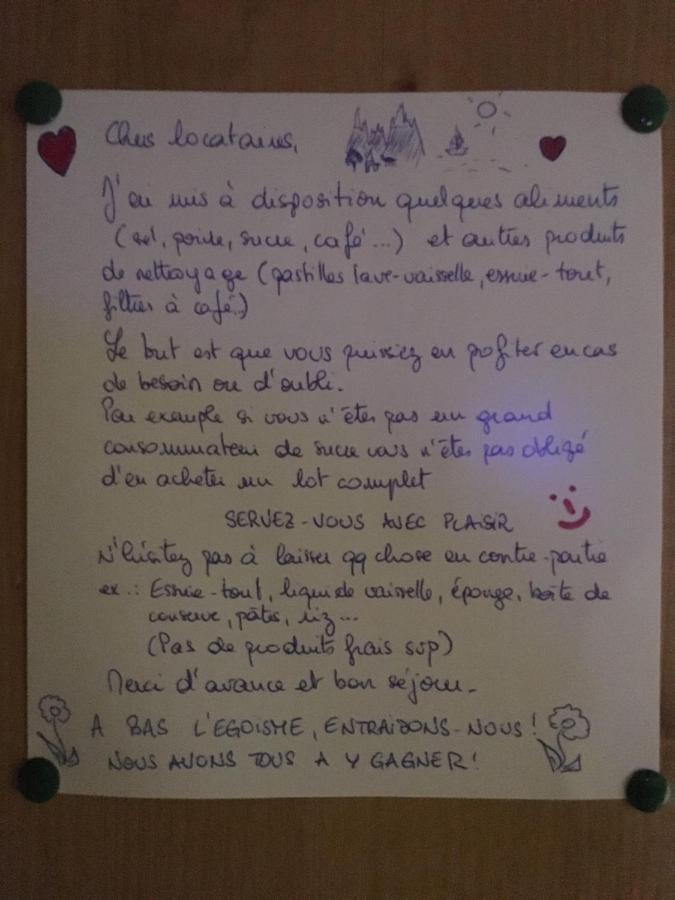 Chers locataires,
J'ai mis à disposition quelques aliments
(sel, poivre, sucre, café...) et autres produits
de nettoyage (pastilles lave-vaisselle, essuie-tout,
filtres à café)
Le but est que vous puissiez en profiter en cas
de besoin ou d'oubli.
Par exemple si vous n'êtes pas un grand
consommateur de sucre vous n'êtes pas obligé
d'en acheter un lot complet
SERVEZ-VOUS AVEC PLAISIR
N'hésitez pas à laisser qq chose en contre-partie
ex.: Essuie-tout, liquide vaisselle, éponge, boîte de
conserve, pâtes, riz...
(Pas de produits frais svp)
Merci d'avance et bon séjour.
A BAS L'EGOISME, ENTRAIDONS-NOUS!
NOUS AVONS TOUS A Y GAGNER!